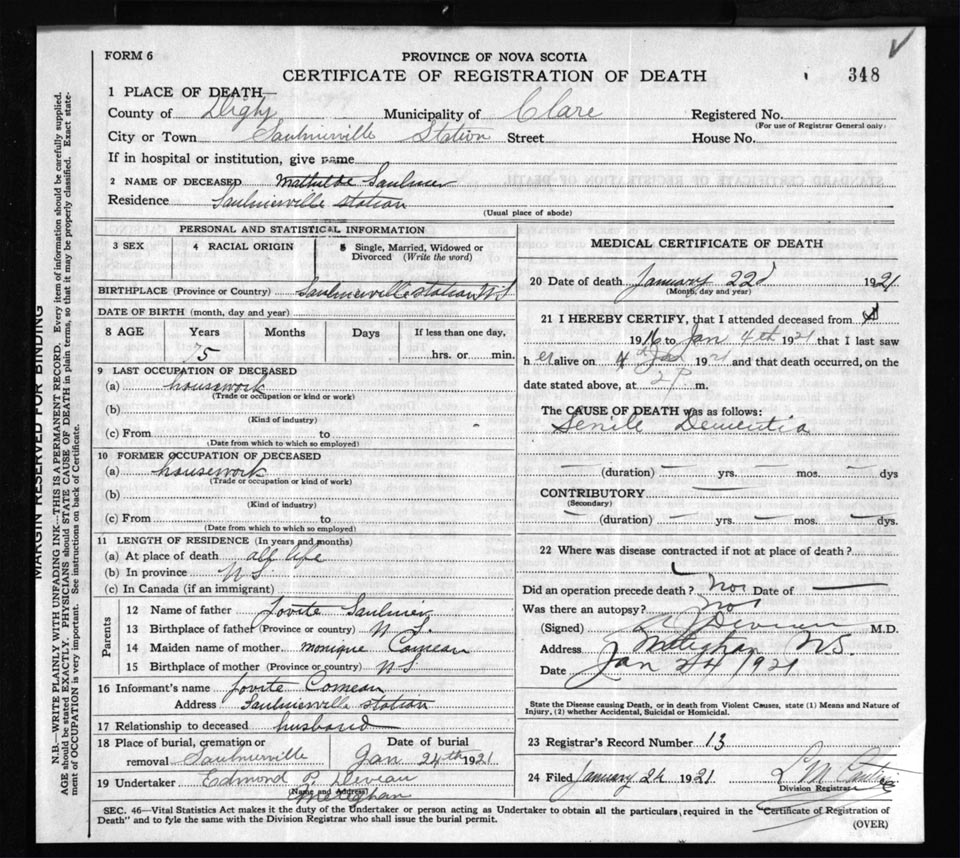 FORM 6
PROVINCE OF NOVA SCOTIA
CERTIFICATE OF REGISTRATION OF DEATH
348
1 PLACE OF DEATH—
County of Digby Municipality of Clare Registered No.
(For use of Registrar General only)
City or Town Saulnierville Station Street House No.
If in hospital or institution, give name
2 NAME OF DECEASED Mathilde Saulnier
Residence Saulnierville station
(Usual place of abode)
PERSONAL AND STATISTICAL INFORMATION
3 SEX 4 RACIAL ORIGIN 5 Single, Married, Widowed or
Divorced (Write the word)
BIRTHPLACE (Province or Country) Saulnierville station N S
DATE OF BIRTH (month, day and year)
8 AGE Years Months Days If less than one day,
75 hrs. or min.
9 LAST OCCUPATION OF DECEASED
(a) housework
(Trade or occupation or kind or work)
(b)
(Kind of industry)
(c) From to
(Date from which to which so employed)
10 FORMER OCCUPATION OF DECEASED
(a) housework
(Trade or occupation or kind of work)
(b)
(Kind of industry)
(c) From to
(Date from which to which so employed)
11 LENGTH OF RESIDENCE (In years and months)
(a) At place of death all life
(b) In province N S.
(c) In Canada (if an immigrant)
Parents
12 Name of father Jovite Saulnier
13 Birthplace of father (Province or country) N S.
14 Maiden name of mother monique Comeau
15 Birthplace of mother (Province or country) N S
16 Informant's name Jovite Comeau
Address Saulnierville station
17 Relationship to deceased husband
18 Place of burial, cremation or Date of burial
removal Saulnierville Jan 24th 1921
19 Undertaker Edmond P. Deveau
(Name and Address)
Meteghan
MEDICAL CERTIFICATE OF DEATH
20 Date of death January 22d 1921
(Month, day and year)
21 I HEREBY CERTIFY, that I attended deceased from
1916 to Jan 4th 1921 that I last saw
h er alive on 4th Jan 1921 and that death occurred, on the
date stated above, at 2 P. m.
The CAUSE OF DEATH was as follows:
Senile Dementia
(duration) yrs. mos. dys
CONTRIBUTORY
(Secondary)
(duration) yrs. mos. dys.
22 Where was disease contracted if not at place of death?
Did an operation precede death? no Date of
Was there an autopsy? no
(Signed) M.D.
Address Meteghan N.S.
Date Jan 24 1921
State the Disease causing Death, or in death from Violent Causes, state (1) Means and Nature of
Injury, (2) whether Accidental, Suicidal or Homicidal.
23 Registrar's Record Number 13
24 Filed January 26 1921
Division Registrar
SEC. 46—Vital Statistics Act makes it the duty of the Undertaker or person acting as Undertaker to obtain all the particulars required in the "Certificate of Registration of
Death" and to fyle the same with the Division Registrar who shall issue the burial permit.
(OVER)
MARGIN RESERVED FOR BINDING
N.B.—WRITE PLAINLY WITH UNFADING INK—THIS IS A PERMANENT RECORD. Every item of information should be carefully supplied.
AGE should be stated EXACTLY. PHYSICIANS should STATE CAUSE OF DEATH in plain terms, so that it may be properly classified. Exact state-
ment of OCCUPATION is very important. See instructions on back of Certificate.